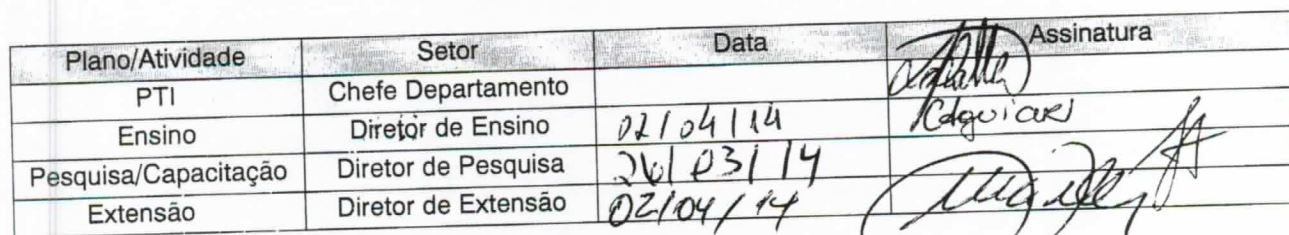 Plano/Atividade Setor Data Assinatura
PTI Chefe Departamento
Ensino Diretor de Ensino 02/04/14
Pesquisa/Capacitação Diretor de Pesquisa 26/03/14
Extensão Diretor de Extensão 02/04/14